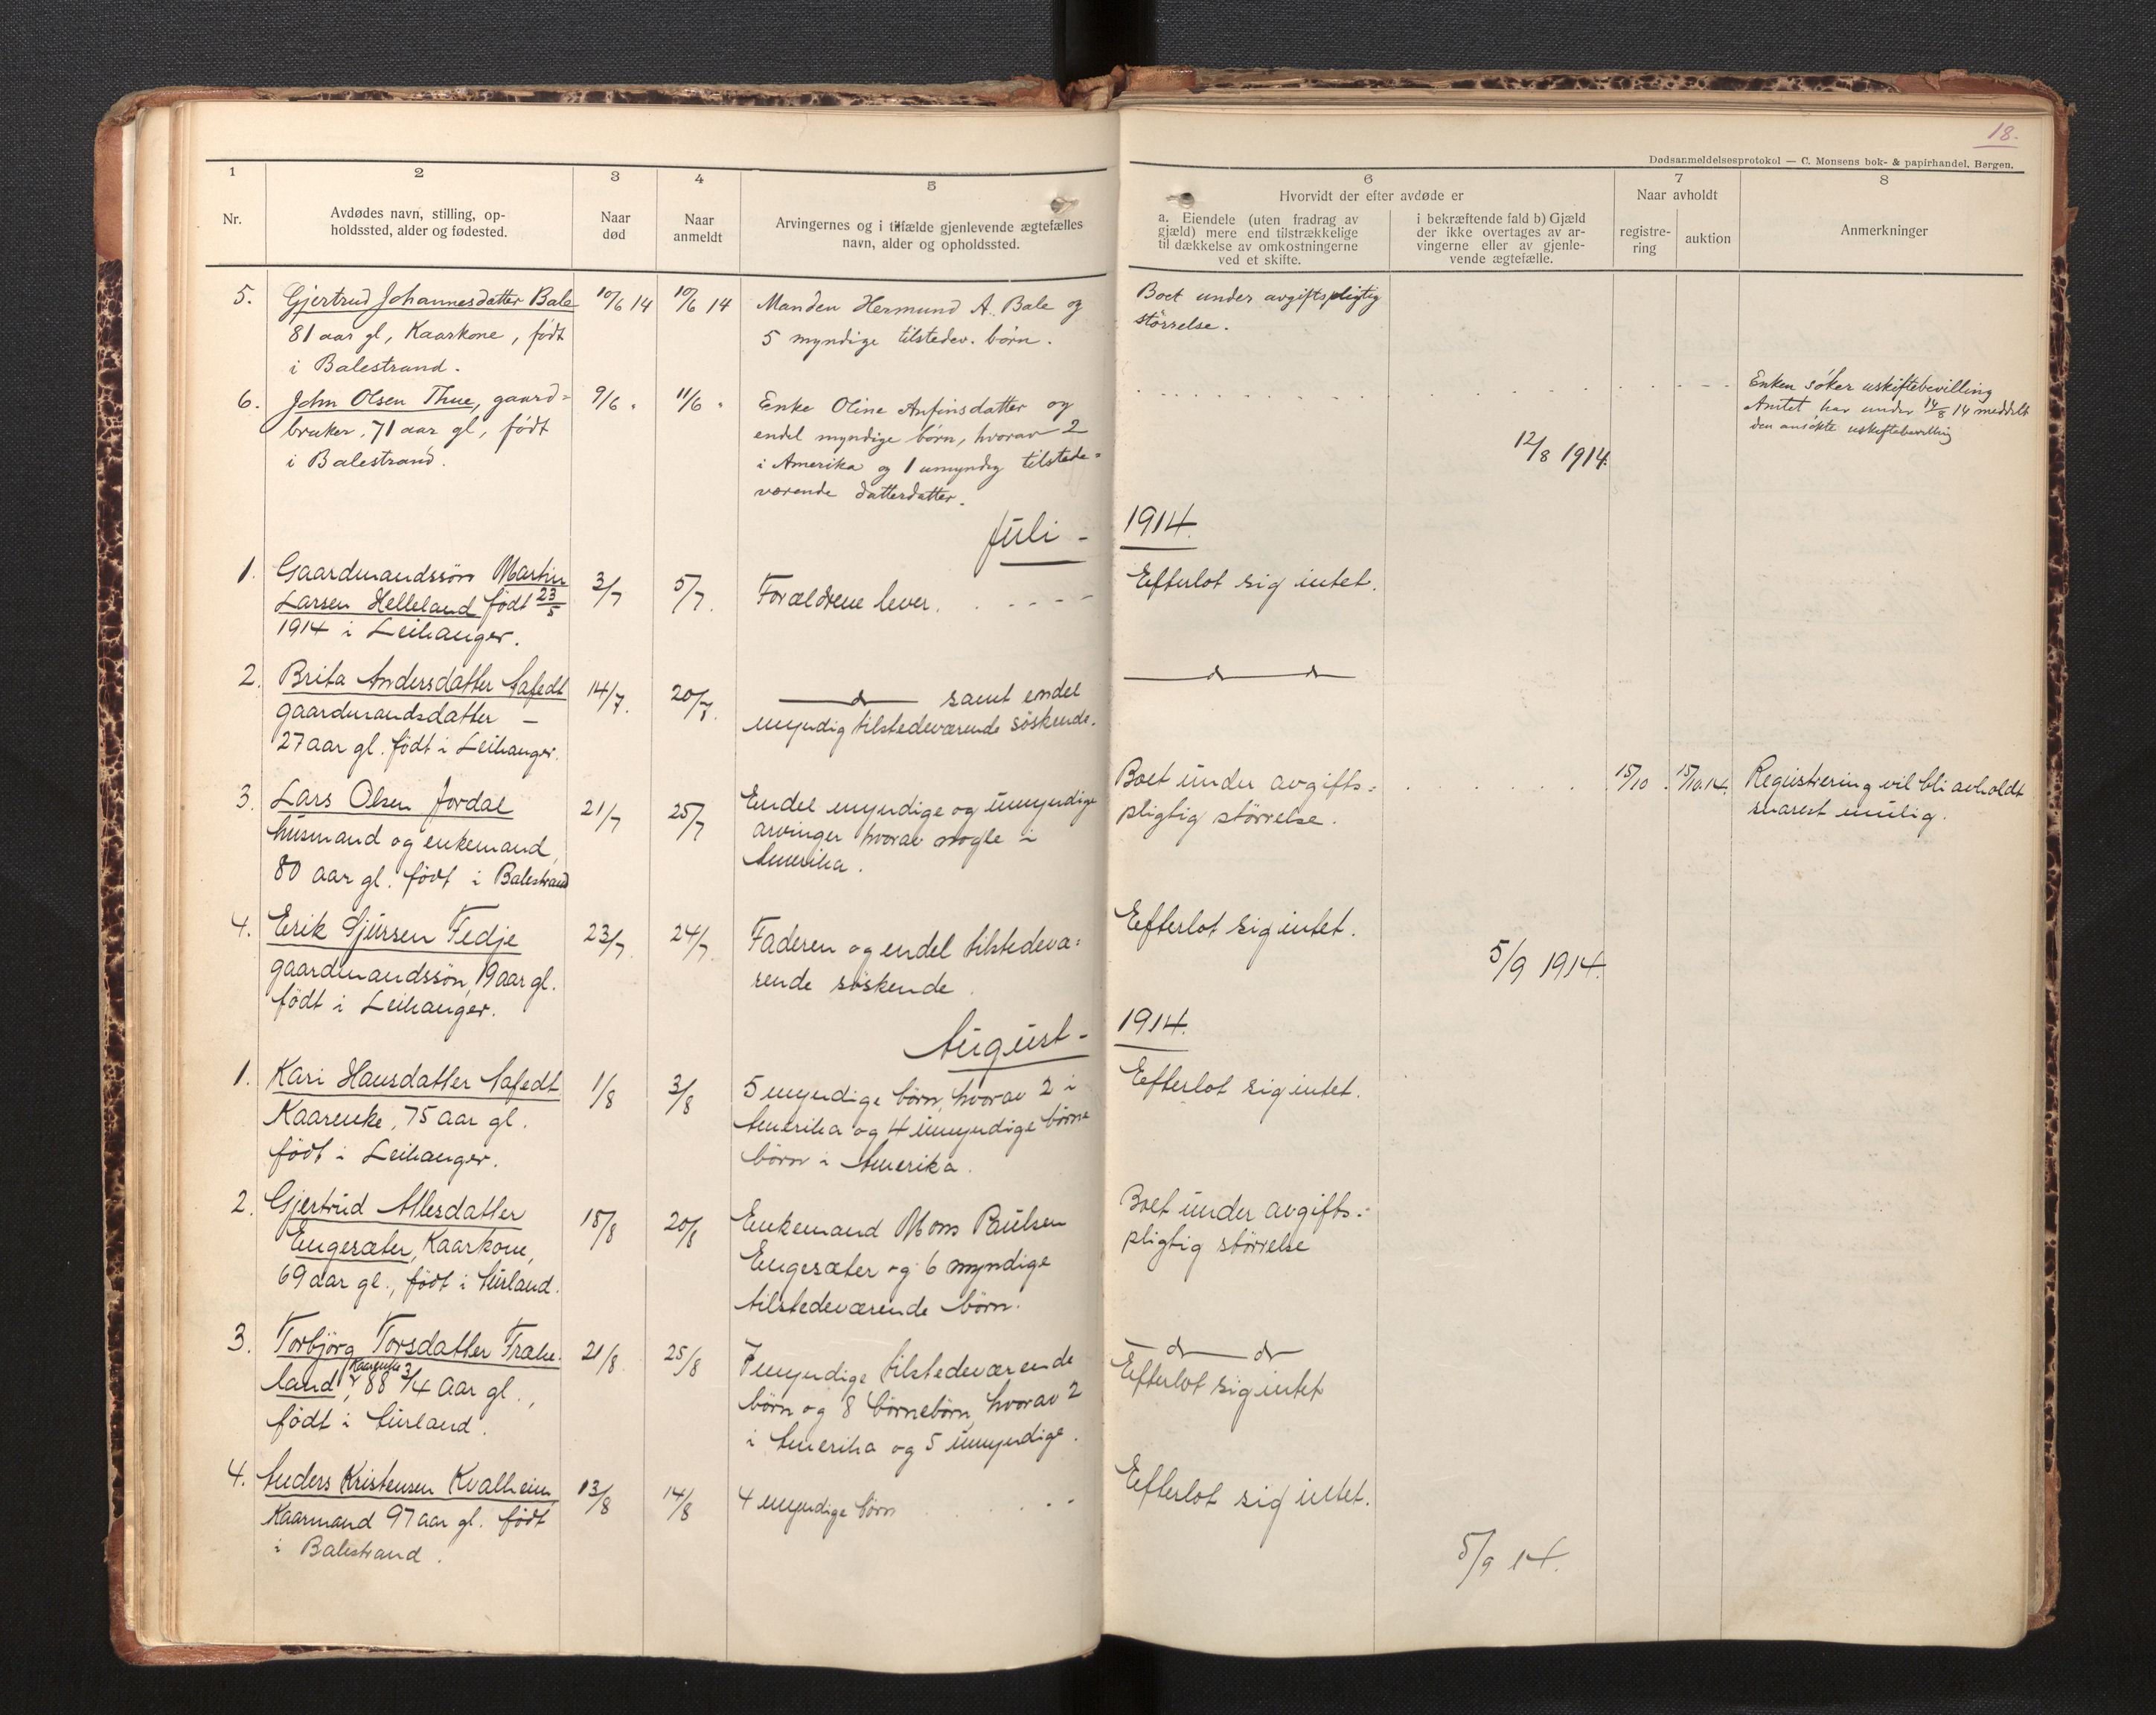 18.
Dødsanmeldelsesprotokol — C. Monsens bok- & papirhandel, Bergen.
1
2
3
4
5
6
7
8
Nr.
Avdødes navn, stilling, op-
holdssted, alder og fødested.
Naar
død
Naar
anmeldt
Arvingernes og i tilfælde gjenlevende ægtefælles
navn, alder og opholdssted.
Hvorvidt der efter avdøde er
a. Eiendele (uten fradrag av
gjæld) mere end tilstrækkelige
til dækkelse av omkostningerne
ved et skifte.
i bekræftende fald b) Gjæld
der ikke overtages av ar-
vingerne eller av gjenle-
vende ægtefælle.
Naar avholdt
registre-
ring
auktion
Anmerkninger
5.
Gjertrud Johannesdatter Bale
81 aar gl, Kaarkone, født
i Balestrand.
10/6 14
10/6 14
Manden Hermund A. Bale og
5 myndige tilstedev. børn.
Boet under avgiftspligtig
størrelse.
6.
John Olsen Thue, gaard=
bruker, 71 aar gl, født
i Balestrand.
9/6 "
11/6 "
Enke Oline Anfinsdatter og
endel myndige børn, hvorav 2
i Amerika og 1 umyndig tilstede=
værende datterdatter.
12/8 1914.
Enken søker uskiftebevilling
Amtet har under 14/8 14 meddelt
den ansøkte uskiftebevilling
Juli - 1914.
1.
Gaardmandssøn Martin
Larsen Helleland født 23/5
1914 i Leikanger.
3/7
5/7.
Forældrene lever.
Efterlot sig intet.
2.
Brita Andersdatter Nafedt
gaardmandsdatter —
27 aar gl. født i Leikanger.
14/7.
20/7.
— d — samt endel
myndig tilstedeværende søskende.
— d — d —
3.
Lars Olsen Jordal
husmand og enkemand,
80 aar gl. født i Balestrand
21/7
25/7
Endel myndige og umyndige
arvinger hvorav nogle i
Amerika.
Boet under avgifts=
pligtig størrelse.
15/10
15/10.14.
Registrering vil bli avholdt
snarest mulig.
4.
Erik Sjursen Fedje
gaardmandssøn, 19 aar gl.
født i Leikanger.
23/7
24/7
Faderen og endel tilstedevæ=
rende søskende.
Efterlot sig intet.
5/9 1914.
August - 1914.
1.
Kari Hansdatter Nafedt
Kaarenke, 75 aar gl.
født i Leikanger.
1/8
3/8
5 myndige børn, hvorav 2 i
Amerika og 4 umyndige børne
børn i Amerika.
Efterlot sig intet.
2.
Gjertrud Atlesdatter
Engesæter, Kaarkone,
69 aar gl., født i Aurland.
18/8
20/8
Enkemand Mons Paulsen
Engesæter og 6 myndige
tilstedeværende børn.
Boet under avgifts=
pligtig størrelse
3.
Torbjörg Torsdatter
land, Kaarenke 88 3/4 aar gl.,
født i Aurland.
21/8
25/8
7 myndige tilstedeværende
børn og 8 børnebørn, hvorav 2
i Amerika og 5 umyndige.
— d — d —
Efterlot sig intet
4.
Anders Kristensen Kvalheim
Kaarmand 97 aar gl. født
i Balestrand.
13/8
14/8
4 myndige børn
Efterlot sig intet.
5/9 14.